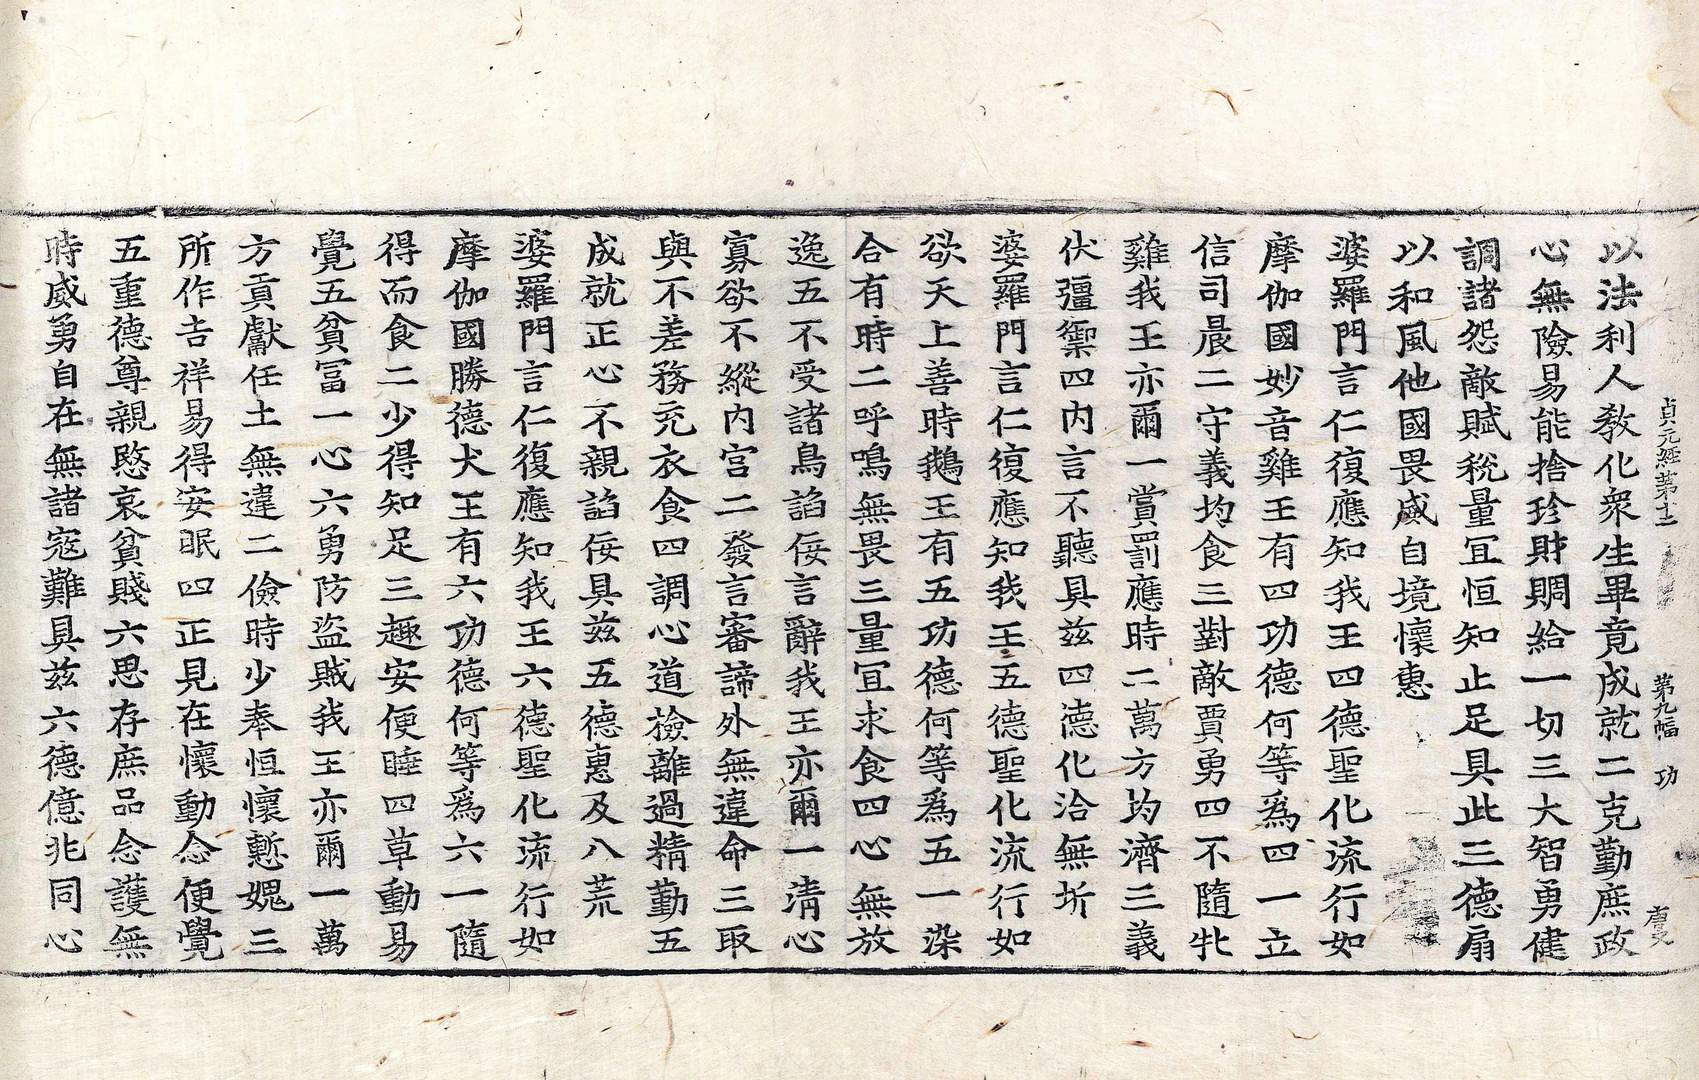 貞元經第十二 第九幅 功 慶文
以法利人教化衆生畢竟成就二克勤庶政
心無險易能捨珍財賙給一切三大智勇健
調諸怨敵賦稅量冝恒知止足具此三德扇
以和風他國畏威自境懷惠
婆羅門言仁復應知我王四德聖化流行如
摩伽國妙音雞王有四功德何等爲四一立
信司晨二守義均食三對敵賈勇四不隨牝
雞我王亦爾一賞罰應時二萬方均濟三義
伏彊禦四内言不聽具兹四德化洽無圻
婆羅門言仁復應知我王五德聖化流行如
欲天上善時鵝王有五功德何等爲五一染
合有時二呼鳴無畏三量冝求食四心無放
逸五不受諸鳥諂佞言辭我王亦爾一清心
寡欲不縱内宮二發言審諦外無違命三取
與不差務充衣食四調心道檢離過精勤五
成就正心不親諂佞具兹五德惠及八荒
婆羅門言仁復應知我王六德聖化流行如
摩伽國勝德犬王有六功德何等爲六一隨
得而食二少得知足三趣安便睡四草動易
覺五貧冨一心六勇防盜賊我王亦爾一萬
方貢獻任土無違二儉時少奉恒懷慙媿三
所作吉祥易得安眠四正見在懷動念便覺
五重德尊親愍哀貧賤六思存庶品念護無
時威勇自在無諸寇難具兹六德億兆同心